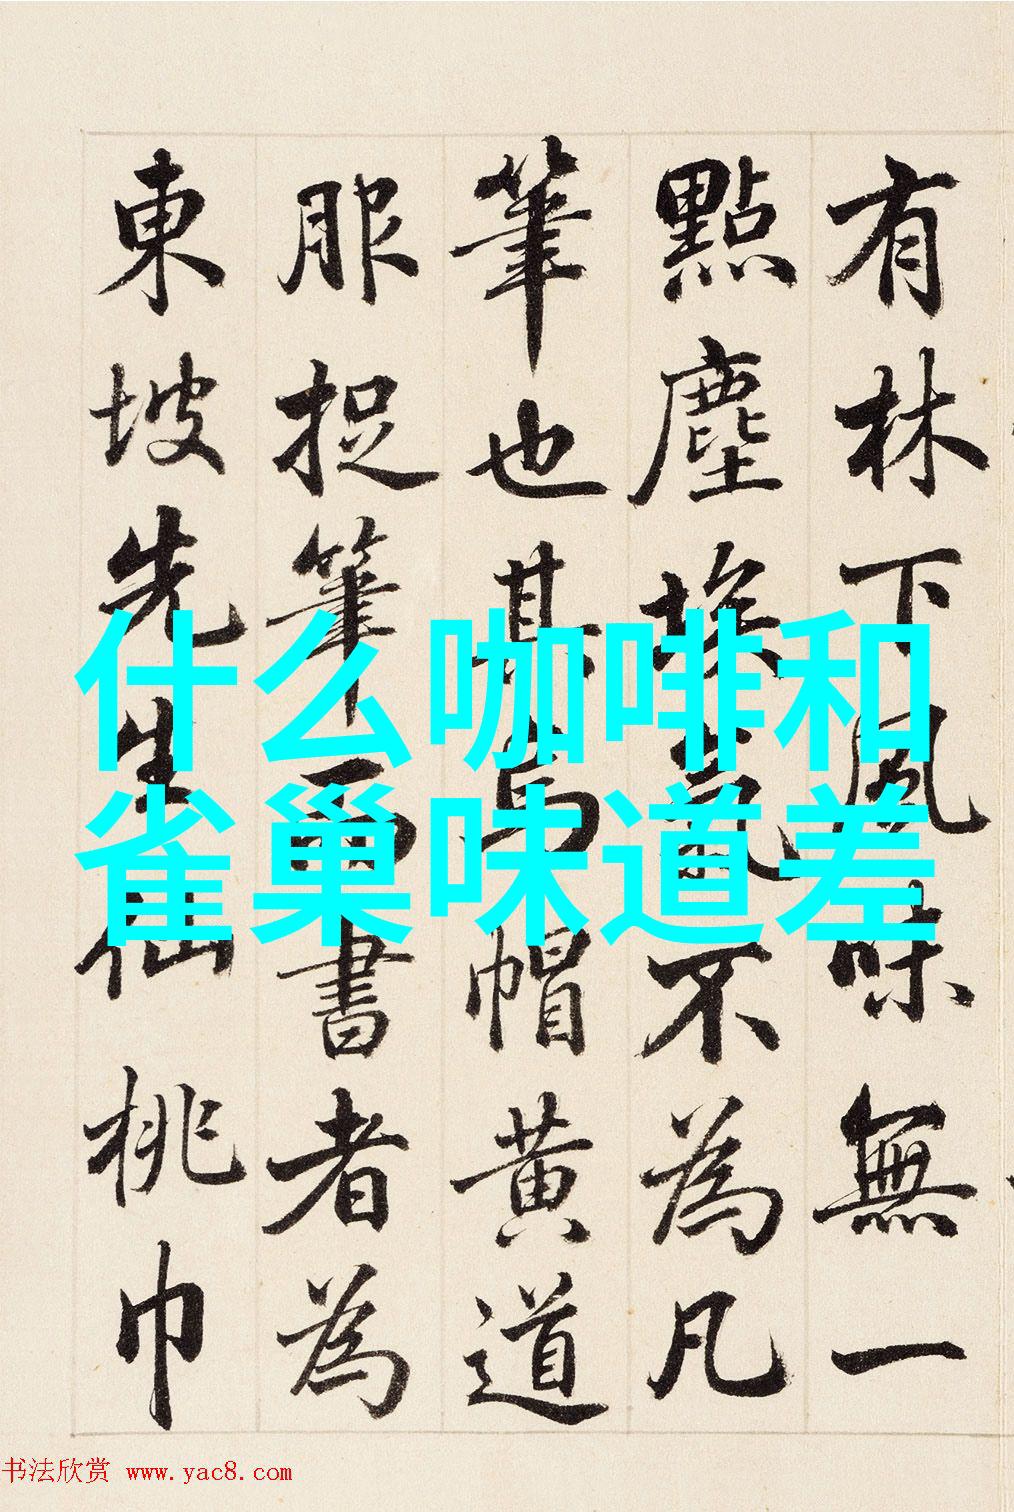 有林下風味無一
點塵埃氣不為凡
筆也其烏帽黃道
服捉筆而書者為
東坡先生仙桃巾
什么咖啡和
雀巢味道差
书法欣赏 www.yac8.com